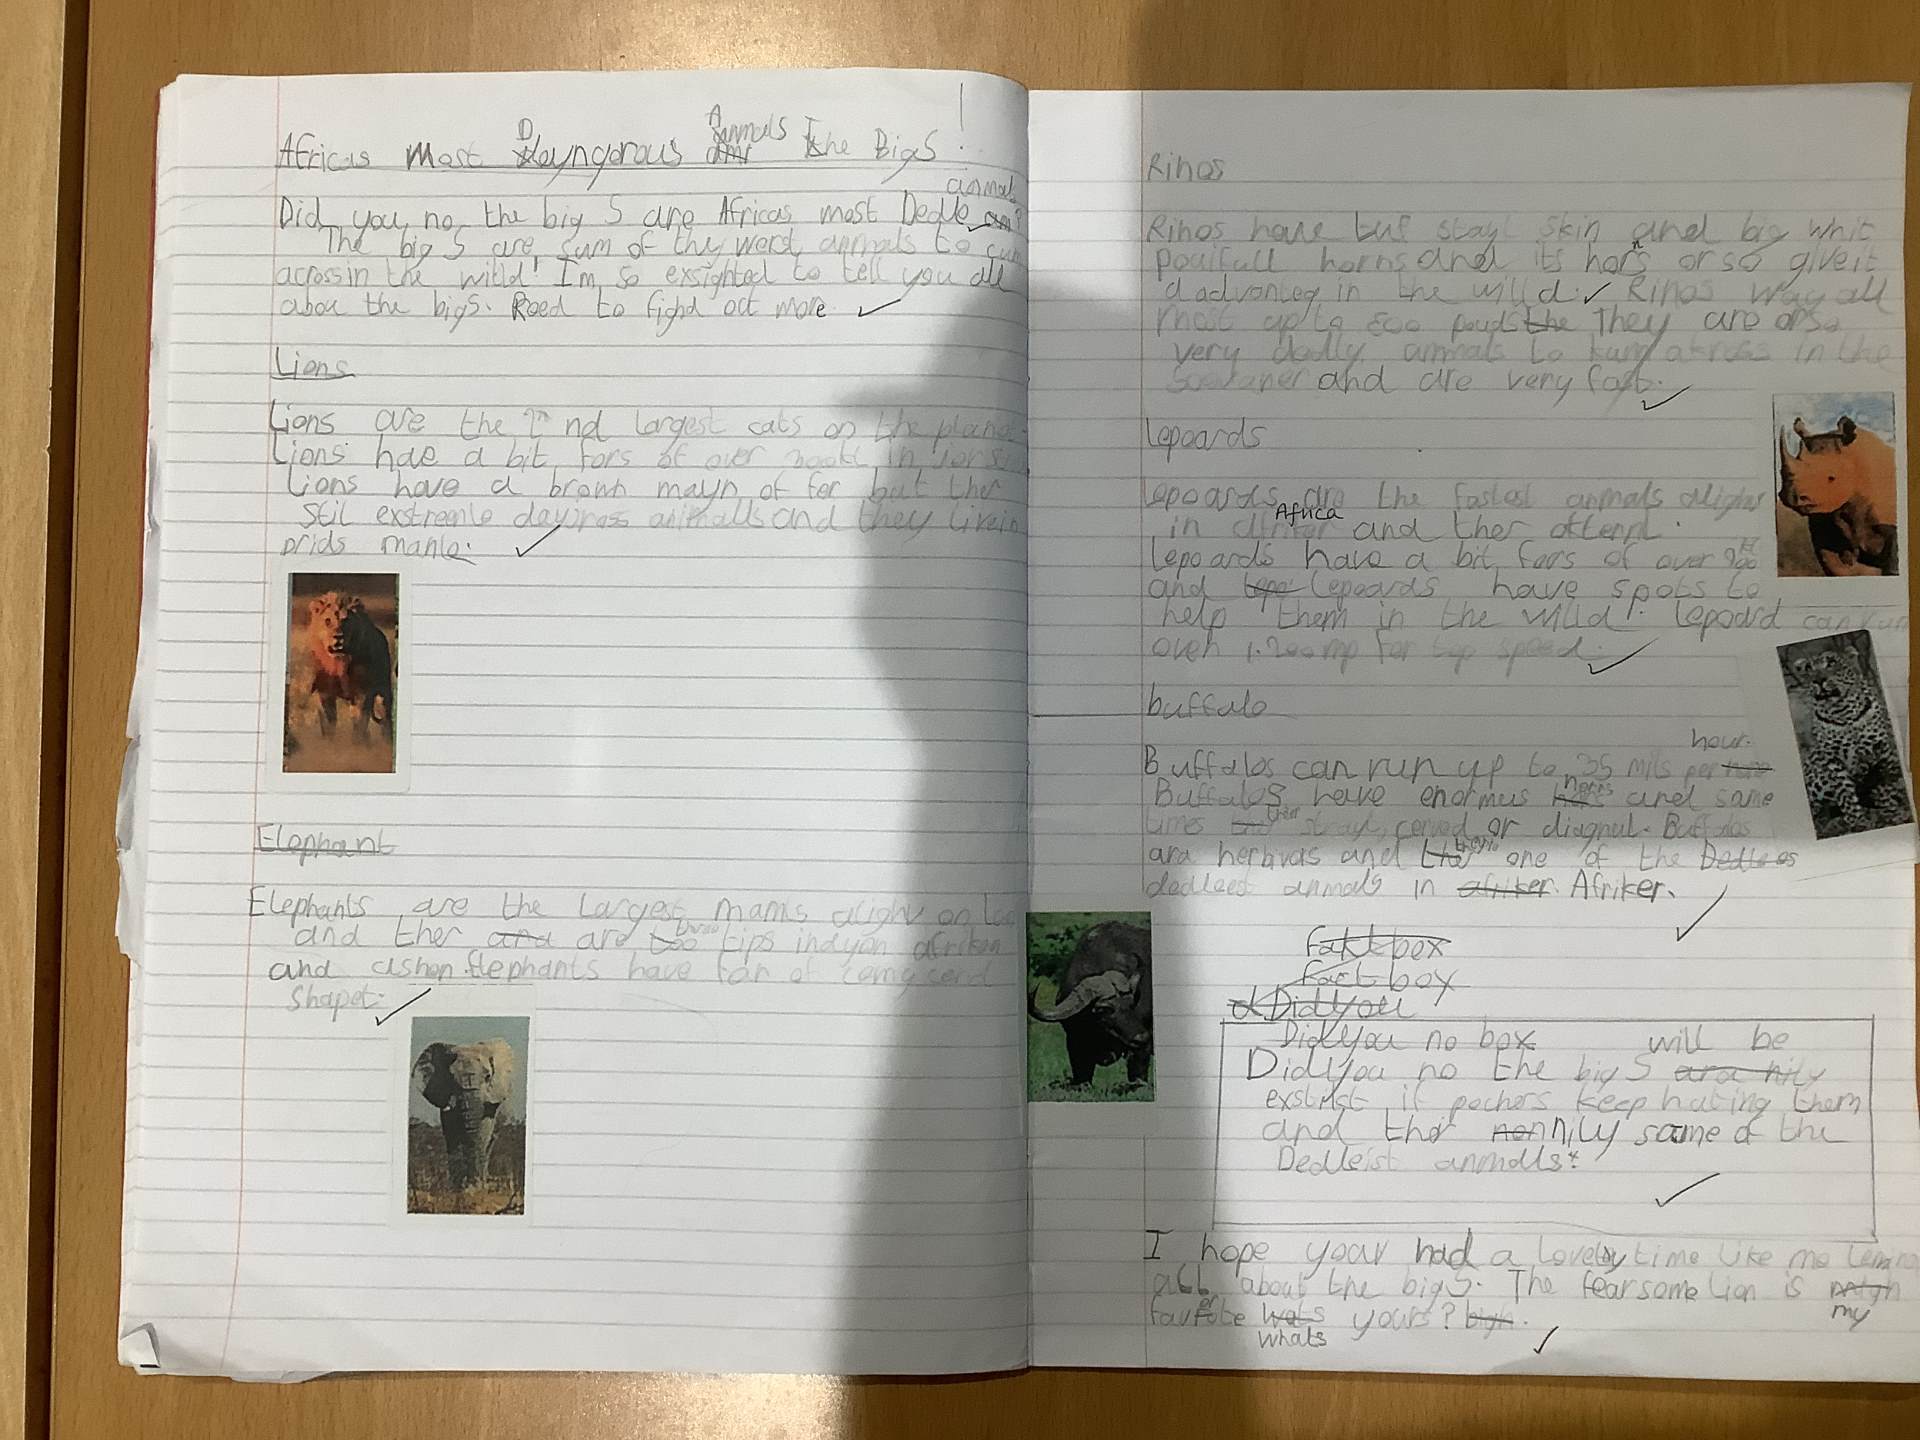 Africas Most Dayngorous Anmals The Big 5!
Did you no the big 5 are Africas most Dedle anmals?
The big 5 are sum of the werst anmals to cum
across in the willd! I'm so exsighted to tell you all
abou the big 5. Reed to fighd out more.
Lions
Lions are the 2nd largest cats on the planet.
Lions have a bit fors of over in
Lions have a brown mayn of fer but ther
stil exstreemle animalls and they live in
prids manle.
Elephant
Elephants are the Largest mamls alighv on
and ther and are three tips indyan afriken
and ashon. Elephants have
shapet.
Rinos
Rinos have skin and big whit
pouifull horns and its horns orso give it
a advanteg in the willd. Rinos way all
most up to 500 pouds the They are orso
very dedly anmals to kum akross in the
and are very fast.
lepoards
lepoards are the fastest anmals alighv
in afriker Africa and ther
lepoards have a bit fors of over
and lepo lepoards have spots to
help them in the willd. lepoard can run
over 1.200mp for top speed.
buffalo
Buffalos can run up to 35 mils per hour.
Buffalos have enormus horns and some
times ther strayt, cerved or diagnul. Buffalos
ara herbivas and there one of the Dedlees
dedleest anmals in afriker. Afriker.
fakt box
fact box
d Did you
Did you no box
Did you no the big 5 ara nily will be
exstinkt if pochers keep hating them
and ther non nily some of the
Dedleist anmalls?
I hope your had a lovely time like me lerning
all about the big 5. The fearsome lion is my
faverote whats yours?